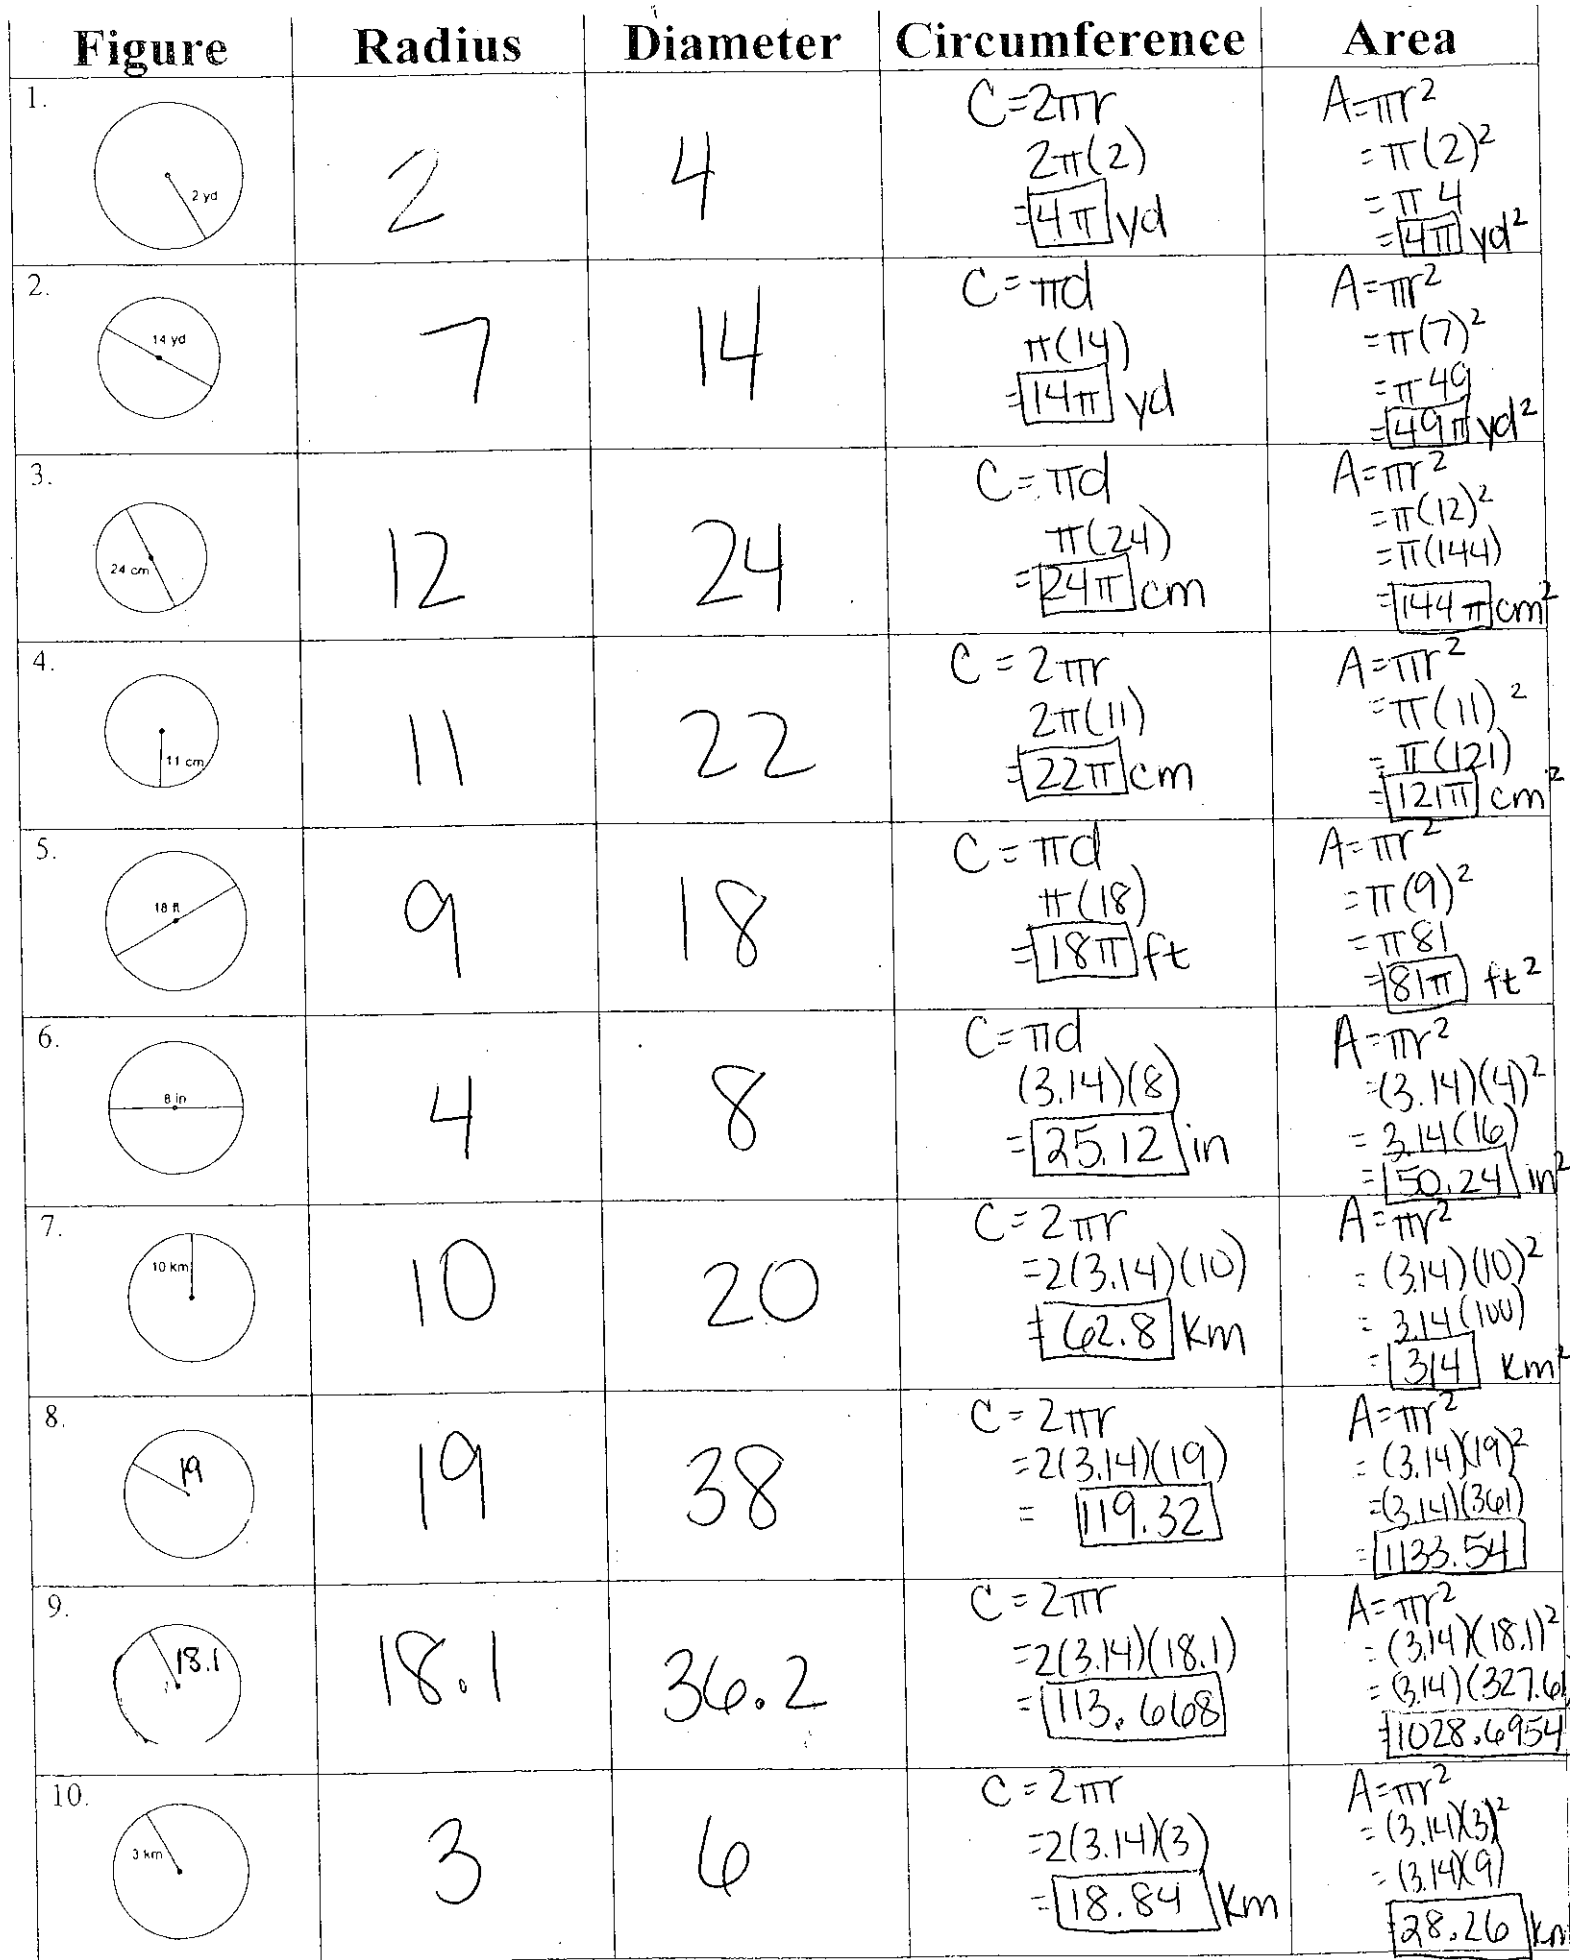 Figure Radius Diameter Circumference Area
1.
2 yd
2
4
C=2πr
2π(2)
=4π yd
A=πr²
=π(2)²
=π 4
=4π yd²
2.
14 yd
7
14
C=πd
π(14)
=14π yd
A=πr²
=π(7)²
=π 49
=49π yd²
3.
24 cm
12
24
C=πd
π(24)
=24π cm
A=πr²
=π(12)²
=π(144)
=144π cm²
4.
11 cm
11
22
C=2πr
2π(11)
=22π cm
A=πr²
=π(11)²
=π(121)
=121π cm²
5.
18 ft
9
18
C=πd
π(18)
=18π ft
A=πr²
=π(9)²
=π 81
=81π ft²
6.
8 in
4
8
C=πd
(3.14)(8)
=25.12 in
A=πr²
=(3.14)(4)²
=3.14(16)
=50.24 in²
7.
10 km
10
20
C=2πr
=2(3.14)(10)
=62.8 km
A=πr²
=(3.14)(10)²
=3.14(100)
=314 km²
8.
19
19
38
C=2πr
=2(3.14)(19)
=119.32
A=πr²
=(3.14)(19)²
=(3.14)(361)
=1133.54
9.
18.1
18.1
36.2
C=2πr
=2(3.14)(18.1)
=113.668
A=πr²
=(3.14)(18.1)²
=(3.14)(327.61
=1028.6954
10.
3 km
3
6
C=2πr
=2(3.14)(3)
=18.84 km
A=πr²
=(3.14)(3)²
=(3.14)(9)
=28.26 km